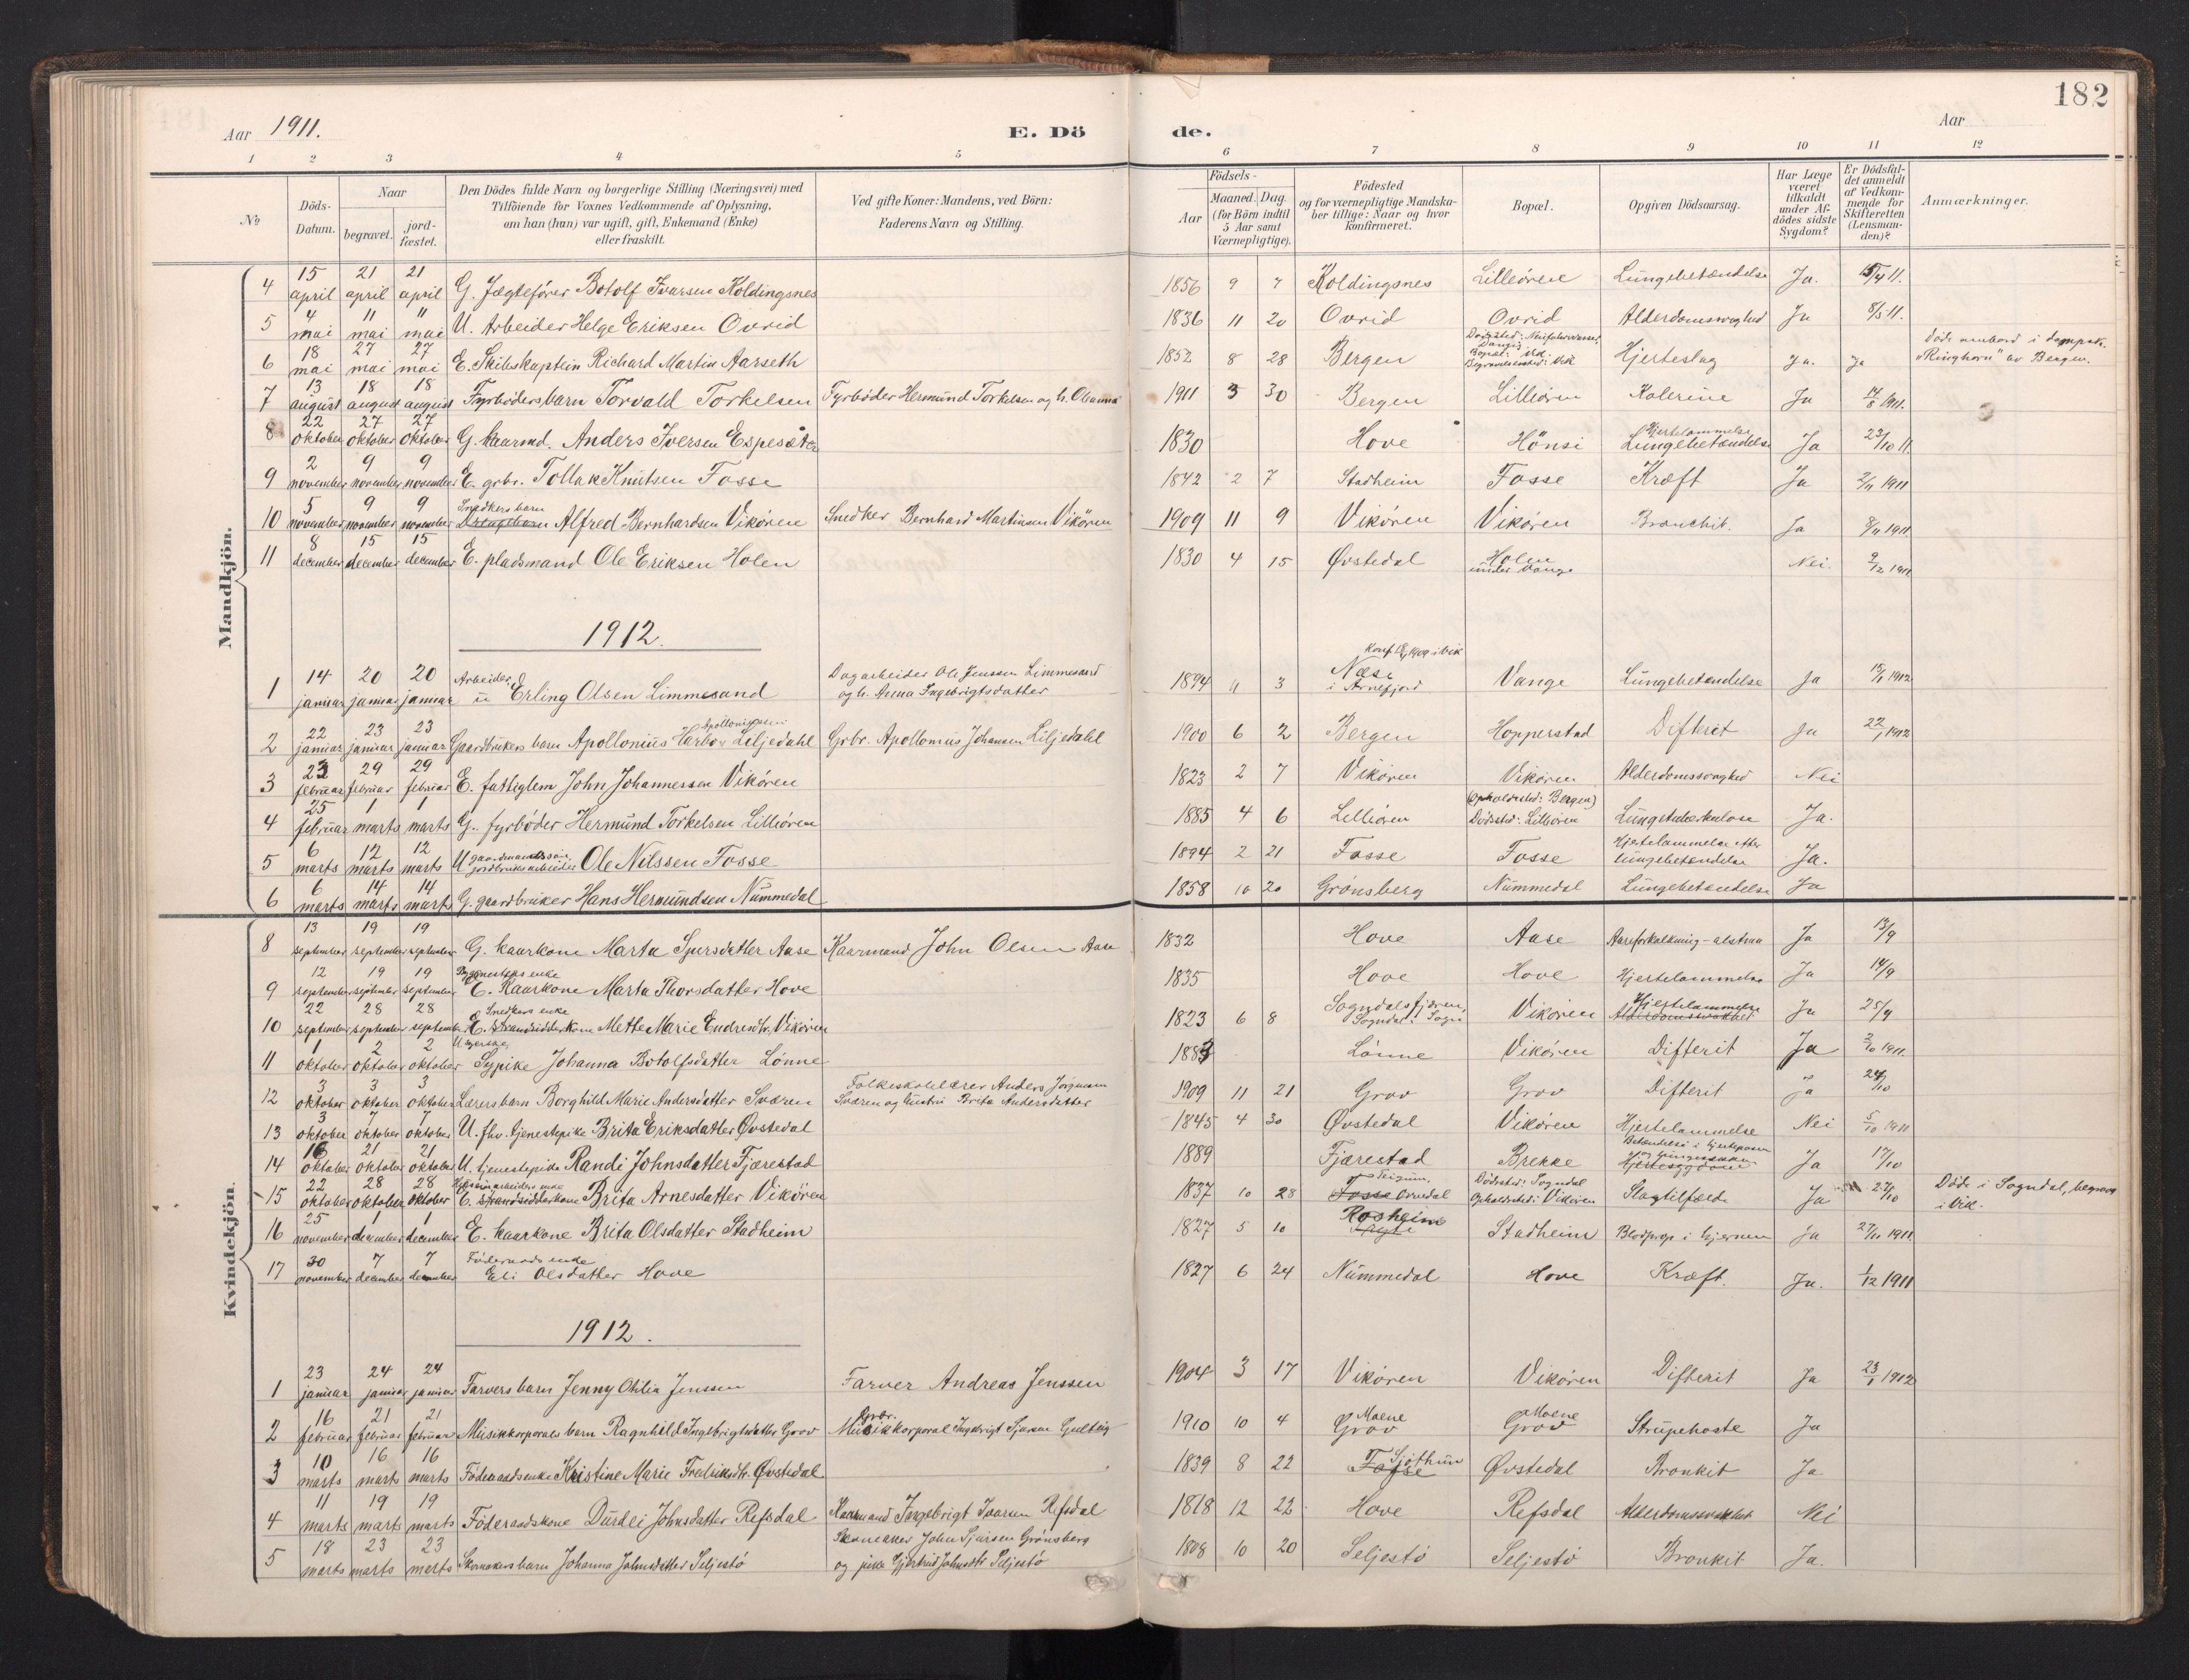 182
Aar 1911.
E. Dö
de.
Aar
1 2 3 4 5 6 7 8 9 10 11 12
No
Döds-Datum.
Naar
begravet.
jord-fæstet.
Den Dödes fulde Navn og borgerlige Stilling (Næringsvei) med
Tilföiende for Voxnes Vedkommende af Oplysning,
om han (hun) var ugift, gift, Enkemand (Enke)
eller fraskilt.
Ved gifte Koner: Mandens, ved Börn:
Faderens Navn og Stilling.
Födsels-
Aar
Maaned. Dag.
(for Börn indtil
5 Aar samt
Værnepligtige).
Födested
og for værnepligtige Mandska-
ber tillige: Naar og hvor
konfirmeret.
Bopæl.
Opgiven Dödsaarsag.
Har Læge
været
tilkaldt
under Af-
dödes sidste
Sygdom?
Er Dödsfal-
det anmeldt
af Vedkom-
mende for
Skifteretten
(Lensman-
den)?
Anmærkninger.
Mandkjön.
4 15 april 21 april 21 april G. Jægtefører Botolf Ivarsen Koldingsnes 1856 9 7 Koldingsnes Lilleøren Lungebetændelse Ja. 15/4 11.
5 4 mai 11 mai 11 mai U. Arbeider Helge Eriksen Ovrid 1836 11 20 Ovrid Ovrid Alderdomssvaghed Ja 8/5 11.
6 18 mai 27 mai 27 mai E. Skibskaptein Richard Martin Aarseth 1852 8 28 Bergen Dødssted: Bopæl: Vik. Begravelsessted: Vik Hjerteslag Ja. Ja døde ombord i dampsk. "Ringhorn" av Bergen.
7 13 august 18 august 18 august Fyrbødersbarn Torvald Torkelsen Fyrbøder Hermund Torkelsen og h. Oleanna 1911 3 30 Bergen Lilliøren Kolerine Ja 14/8 1911.
8 22 oktober 27 oktober 27 oktober G. kaarmd. Anders Iversen Espesæter 1830 Hove Hönsi Hjertelammelse Lungebetændelse Ja 23/10 11.
9 2 november 9 november 9 november E. grbr. Tollak Knutsen Fosse 1842 2 7 Stadheim Fosse Kræft Ja 2/11 1911
10 5 november 9 november 9 november Snedkers barn Alfred Bernhardsen Vikören Snedker Bernhard Martinsen Vikören 1909 11 9 Vikören Vikören Bronchit. Ja 8/11 1911.
11 8 december 15 december 15 december E. pladsmand Ole Eriksen Holen 1830 4 15 Øvstedal Holen under Vange Nei. 9/12 1911
1912.
1 14 januar 20 januar 20 januar Arbeider, u Erling Olsen Limmesand Dagarbeider Ole Jenssen Limmesand og h. Anna Ingebrigtsdatter 1894 11 3 Konf. 1909 i Vik Næse i Arnefjord Vange Lungebetændelse Ja 15/1 1912
2 22 januar 23 januar 23 januar Gaardbrukers barn Apollonius Harboy Apolloniussen Liljedahl Grbr. Apollonius Johansen Liljedahl 1900 6 2 Bergen Hopperstad Difterit Ja 22/1 1912
3 23 februar 29 februar 29 februar E. fattiglem John Johannessen Vikören 1823 2 7 Vikören Vikören Alderdomssvaghed Nei
4 25 februar 1 marts 1 marts G. fyrbøder Hermund Torkelsen Lilliören 1885 4 6 Lilliören (Opholdssted: Bergen) Dødssted: Lilliören Lungetuberkulose Ja.
5 6 marts 12 marts 12 marts U. gaardmandssön, jordbruksarbeider Ole Nilssen Fosse 1894 2 21 Fosse Fosse Hjertelammelse efter lungebetændelse Ja.
6 6 marts 14 marts 14 marts G. gaardbruker Hans Hermundsen Nummedal 1858 10 20 Grönsberg Nummedal Lungebetændelse Ja
Kvindekjön.
8 13 september 19 september 19 september G. kaarkone Marta Sjursdatter Aase Kaarmand John Olsen Aase 1832 Hove Aase Aareforkalkning - Ja 13/9
9 12 september 19 september 19 september E. Kaarkone Marta Thorsdatter Hove 1835 Hove Hove Hjertelammelse Ja 14/9
10 22 september 28 september 28 september Snedkers enke E. strandsidderkone Mette Marie Endresdtr. Vikören 1823 6 8 Sogndalsfjæren, Sogndal i Sogn Vikören Hjertelammelse Alderdomssvakhet Ja 25/9
11 1 oktober 2 oktober 2 oktober Sypike Johanna Botolfsdatter Lönne 1883 Lönne Vikören Difterit Ja 2/10 1911.
12 3 oktober 3 oktober 3 oktober Lærersbarn Borghild Marie Andersdatter Sværen Folkeskolelærer Anders Jörgensen Sværen og hustru Brita Andersdatter 1909 11 21 Grov Grov Difterit Ja 24/10
13 3 oktober 7 oktober 7 oktober U. fhv. tjenestepike Brita Eriksdatter Øvstedal 1845 4 30 Øvstedal Vikören Hjertelammelse Nei 5/10 1911
14 16 oktober 21 oktober 21 oktober U. tjenestepike Randi Johnsdatter Fjærestad 1889 Fjærestad Brekke Betændelse i hjerteposen Hjertesygdom Ja 17/10
15 22 oktober 28 oktober 28 oktober enke E. strandsidderkone Brita Arnesdatter Vikören 1837 10 28 Teigum, Fosse Ovredal Dødssted: Sogndal Opholdssted: Vikören Slagtilfælde Ja 27/10 Døde i Sogndal, begravet i Vik.
16 25 november 1 december 1 december E. kaarkone Brita Olsdatter Stadheim 1827 5 10 Rosheim Stadheim Blodprop i hjernen Ja 27/11 1911.
17 30 november 7 december 7 december Föderaads enke Eli Olsdatter Hove 1827 6 24 Nummedal Hove Kræft. Ja. 1/12 1911
1912.
1 23 januar 24 januar 24 januar Farvers barn Jenny Otilia Jenssen Farver Andreas Jenssen 1904 3 17 Vikören Vikören Difterit Ja 23/1 1912
2 16 februar 21 februar 21 februar Musikkorporals barn Ragnhild Ingebrigtsdatter Grov Musikkorporal Ingebrigt Sjursen 1910 10 4 Moene Grov Moene Grov Strupehoste Ja
3 10 marts 16 marts 16 marts Föderaadsenke Kristine Marie Fredriksdtr. Øvstedal 1839 8 22 Sjöthun Fosse Øvstedal Bronkit Ja
4 11 marts 19 marts 19 marts Föderaadskone Durdei Johnsdatter Refsdal Kaarmand Ingebrigt Ivarsen Refsdal 1818 12 22 Hove Refsdal Alderdomssvakhet Nei
5 18 marts 23 marts 23 marts Skomakers barn Johanna Johnsdatter Seljestö Skomaker John Sjursen Grönsberg og pike Gjertrud Johnsdtr. Seljestö 1908 10 20 Seljestö Seljestö Bronkit Ja.